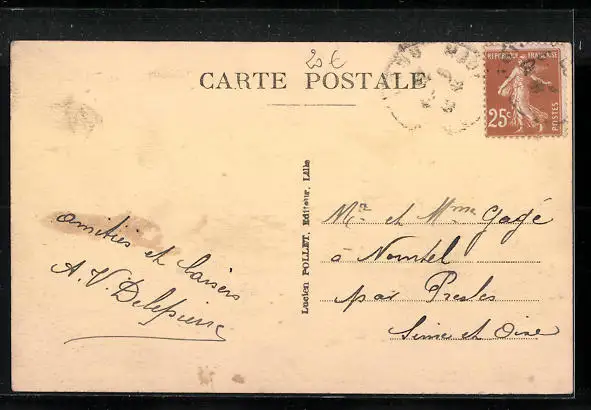 20 €
CARTE POSTALE
REPUBLIQUE FRANÇAISE
25c
POSTES
Lucien POLLET, Editeur, Lille
amitiés et baisers
A. V. Delepierre
Mr et Mme Gagé
à Nointel
par Presles
Seine et Oise